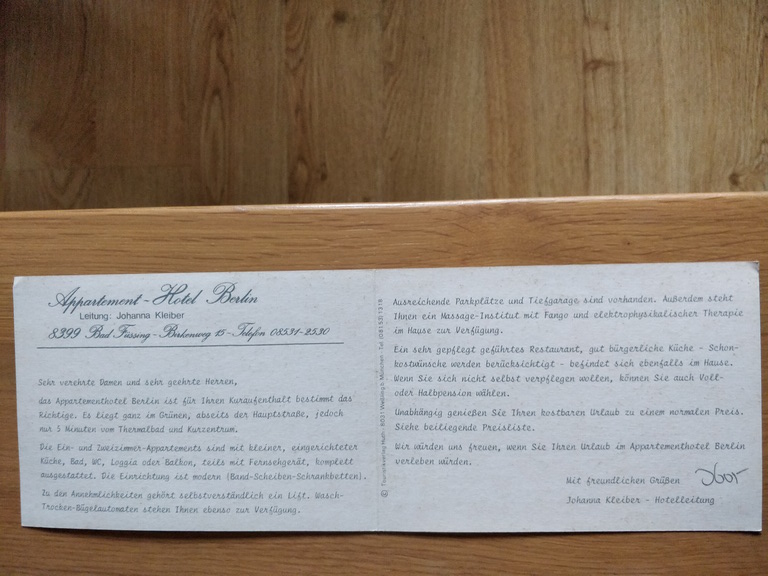 Appartement-Hotel Berlin
Leitung: Johanna Kleiber
8399 Bad Füssing - Birkenweg 15 - Telefon 08531-2530
Sehr verehrte Damen und sehr geehrte Herren,
das Appartementhotel Berlin ist für Ihren Kuraufenthalt bestimmt das
Richtige. Es liegt ganz im Grünen, abseits der Hauptstraße, jedoch
nur 5 Minuten vom Thermalbad und Kurzentrum.
Die Ein- und Zweizimmer-Appartements sind mit kleiner, eingerichteter
Küche, Bad, WC, Loggia oder Balkon, teils mit Fernsehgerät, komplett
ausgestattet. Die Einrichtung ist modern (Band-Scheiben-Schrankbetten).
Zu den Annehmlichkeiten gehört selbstverständlich ein Lift. Wasch-
Trocken-Bügelautomaten stehen Ihnen ebenso zur Verfügung.
Ausreichende Parkplätze und Tiefgarage sind vorhanden. Außerdem steht
Ihnen ein Massage-Institut mit Fango und elektrophysikalischer Therapie
im Hause zur Verfügung.
Ein sehr gepflegt geführtes Restaurant, gut bürgerliche Küche - Schon-
kostwünsche werden berücksichtigt - befindet sich ebenfalls im Hause.
Wenn Sie sich nicht selbst verpflegen wollen, können Sie auch Voll-
oder Halbpension wählen.
Unabhängig genießen Sie Ihren kostbaren Urlaub zu einem normalen Preis.
Siehe beiliegende Preisliste.
Wir würden uns freuen, wenn Sie Ihren Urlaub im Appartementhotel Berlin
verleben würden.
Mit freundlichen Grüßen
Johanna Kleiber - Hotelleitung